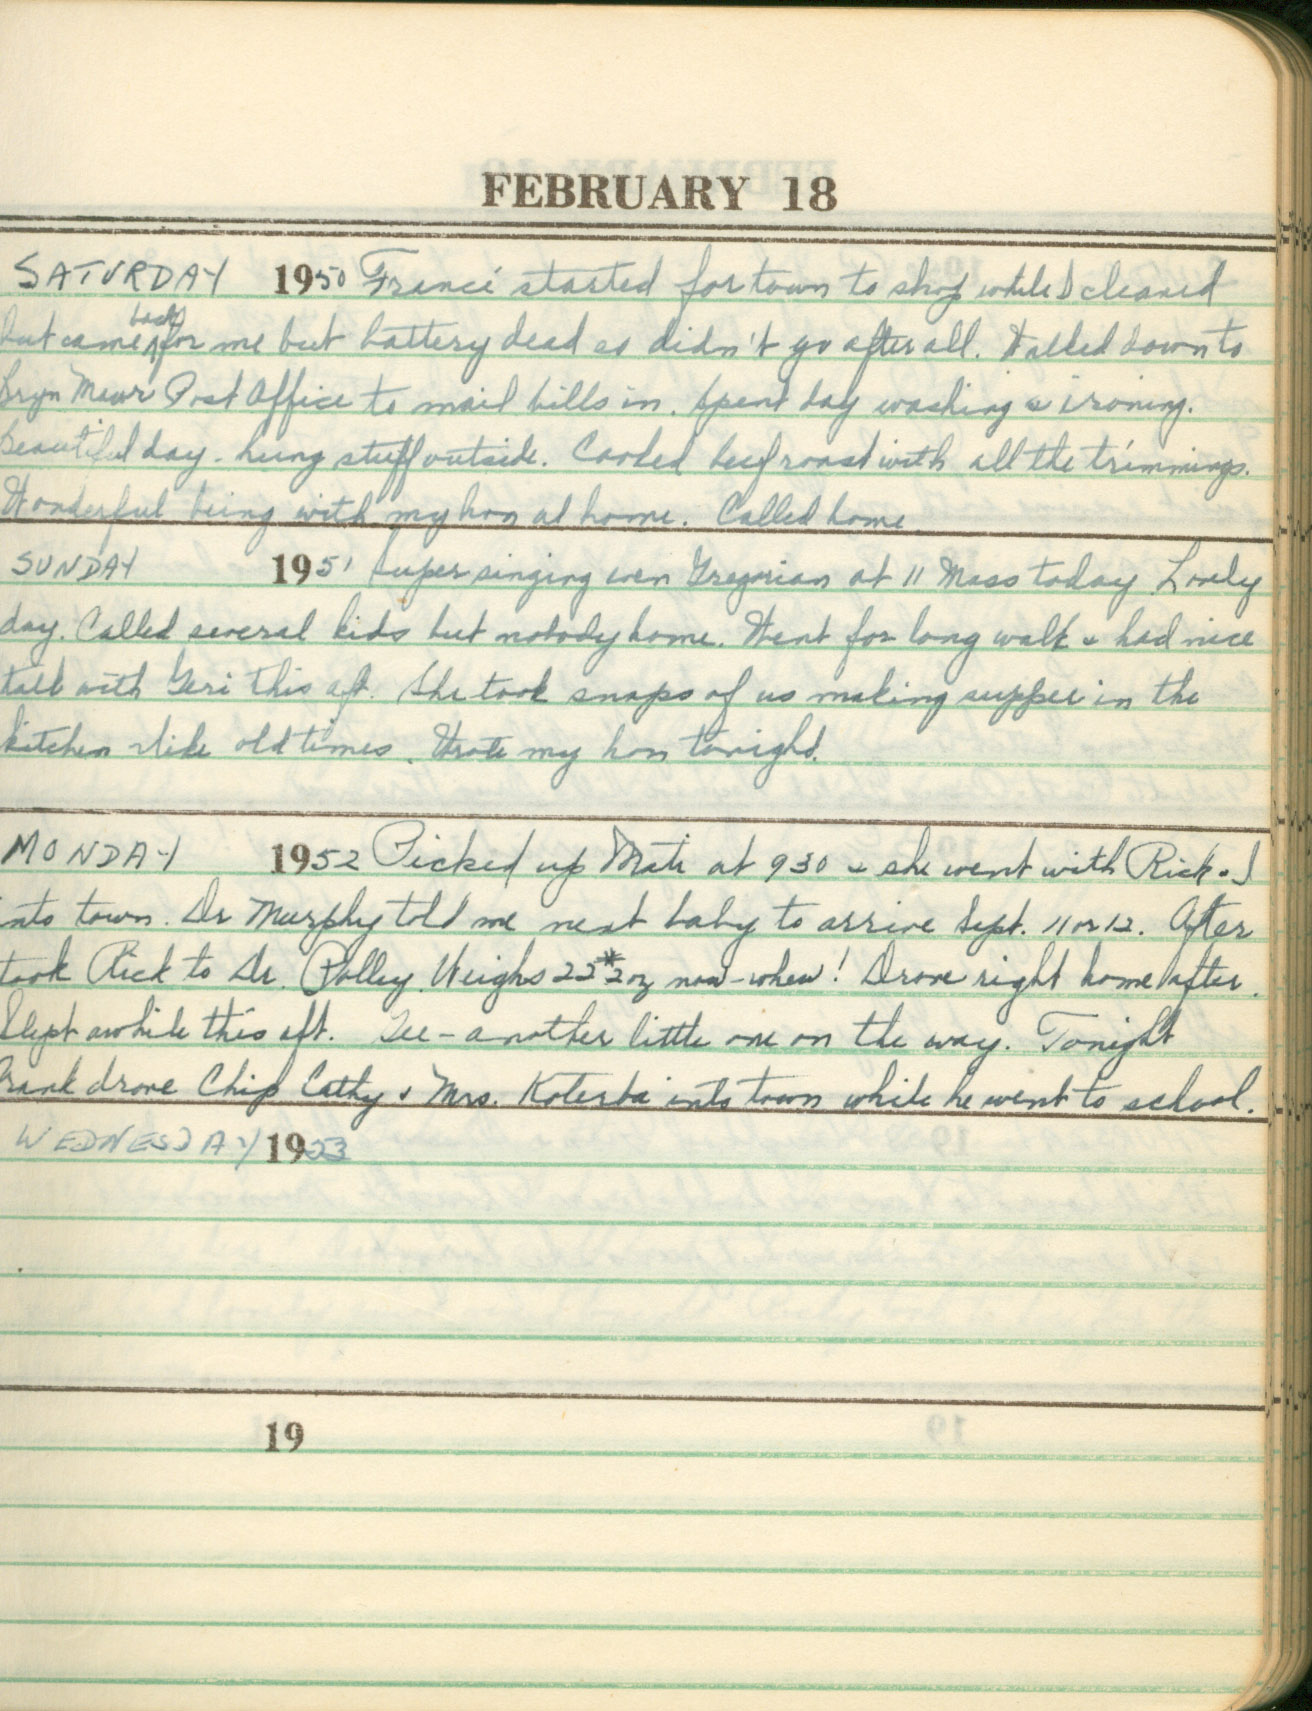 FEBRUARY 18
SATURDAY 1950 Franci started for town to shop while I cleaned
back
but came for me but battery dead so didn't go after all. Walked down to
Bryn Mawr Post Office to mail bills in. Spent day washing & ironing.
Beautiful day - hung stuff outside. Cooked beef roast with all the trimmings.
Wonderful being with my hon at home. Called home.
SUNDAY 1951 Super singing wen Gregorian at 11 Mass today. Lovely
day. Called several kids but nobody home. Went for long walk & had nice
talk with Geri this aft. She took snaps of us making supper in the
kitchen like old times. Wrote my hon tonight.
MONDAY 1952 Picked up Mati at 930 & she went with Rick & I
into town. Dr Murphy told me next baby to arrive Sept. 11 or 12. After
took Rick to Dr. Polley. Weighs 22# 2oz now - whew! Drove right home after.
Slept awhile this aft. Gee - another little one on the way. Tonight
Frank drove Chip Cathy & Mrs. Koterba into town while he went to school.
WEDNESDAY 1953
19